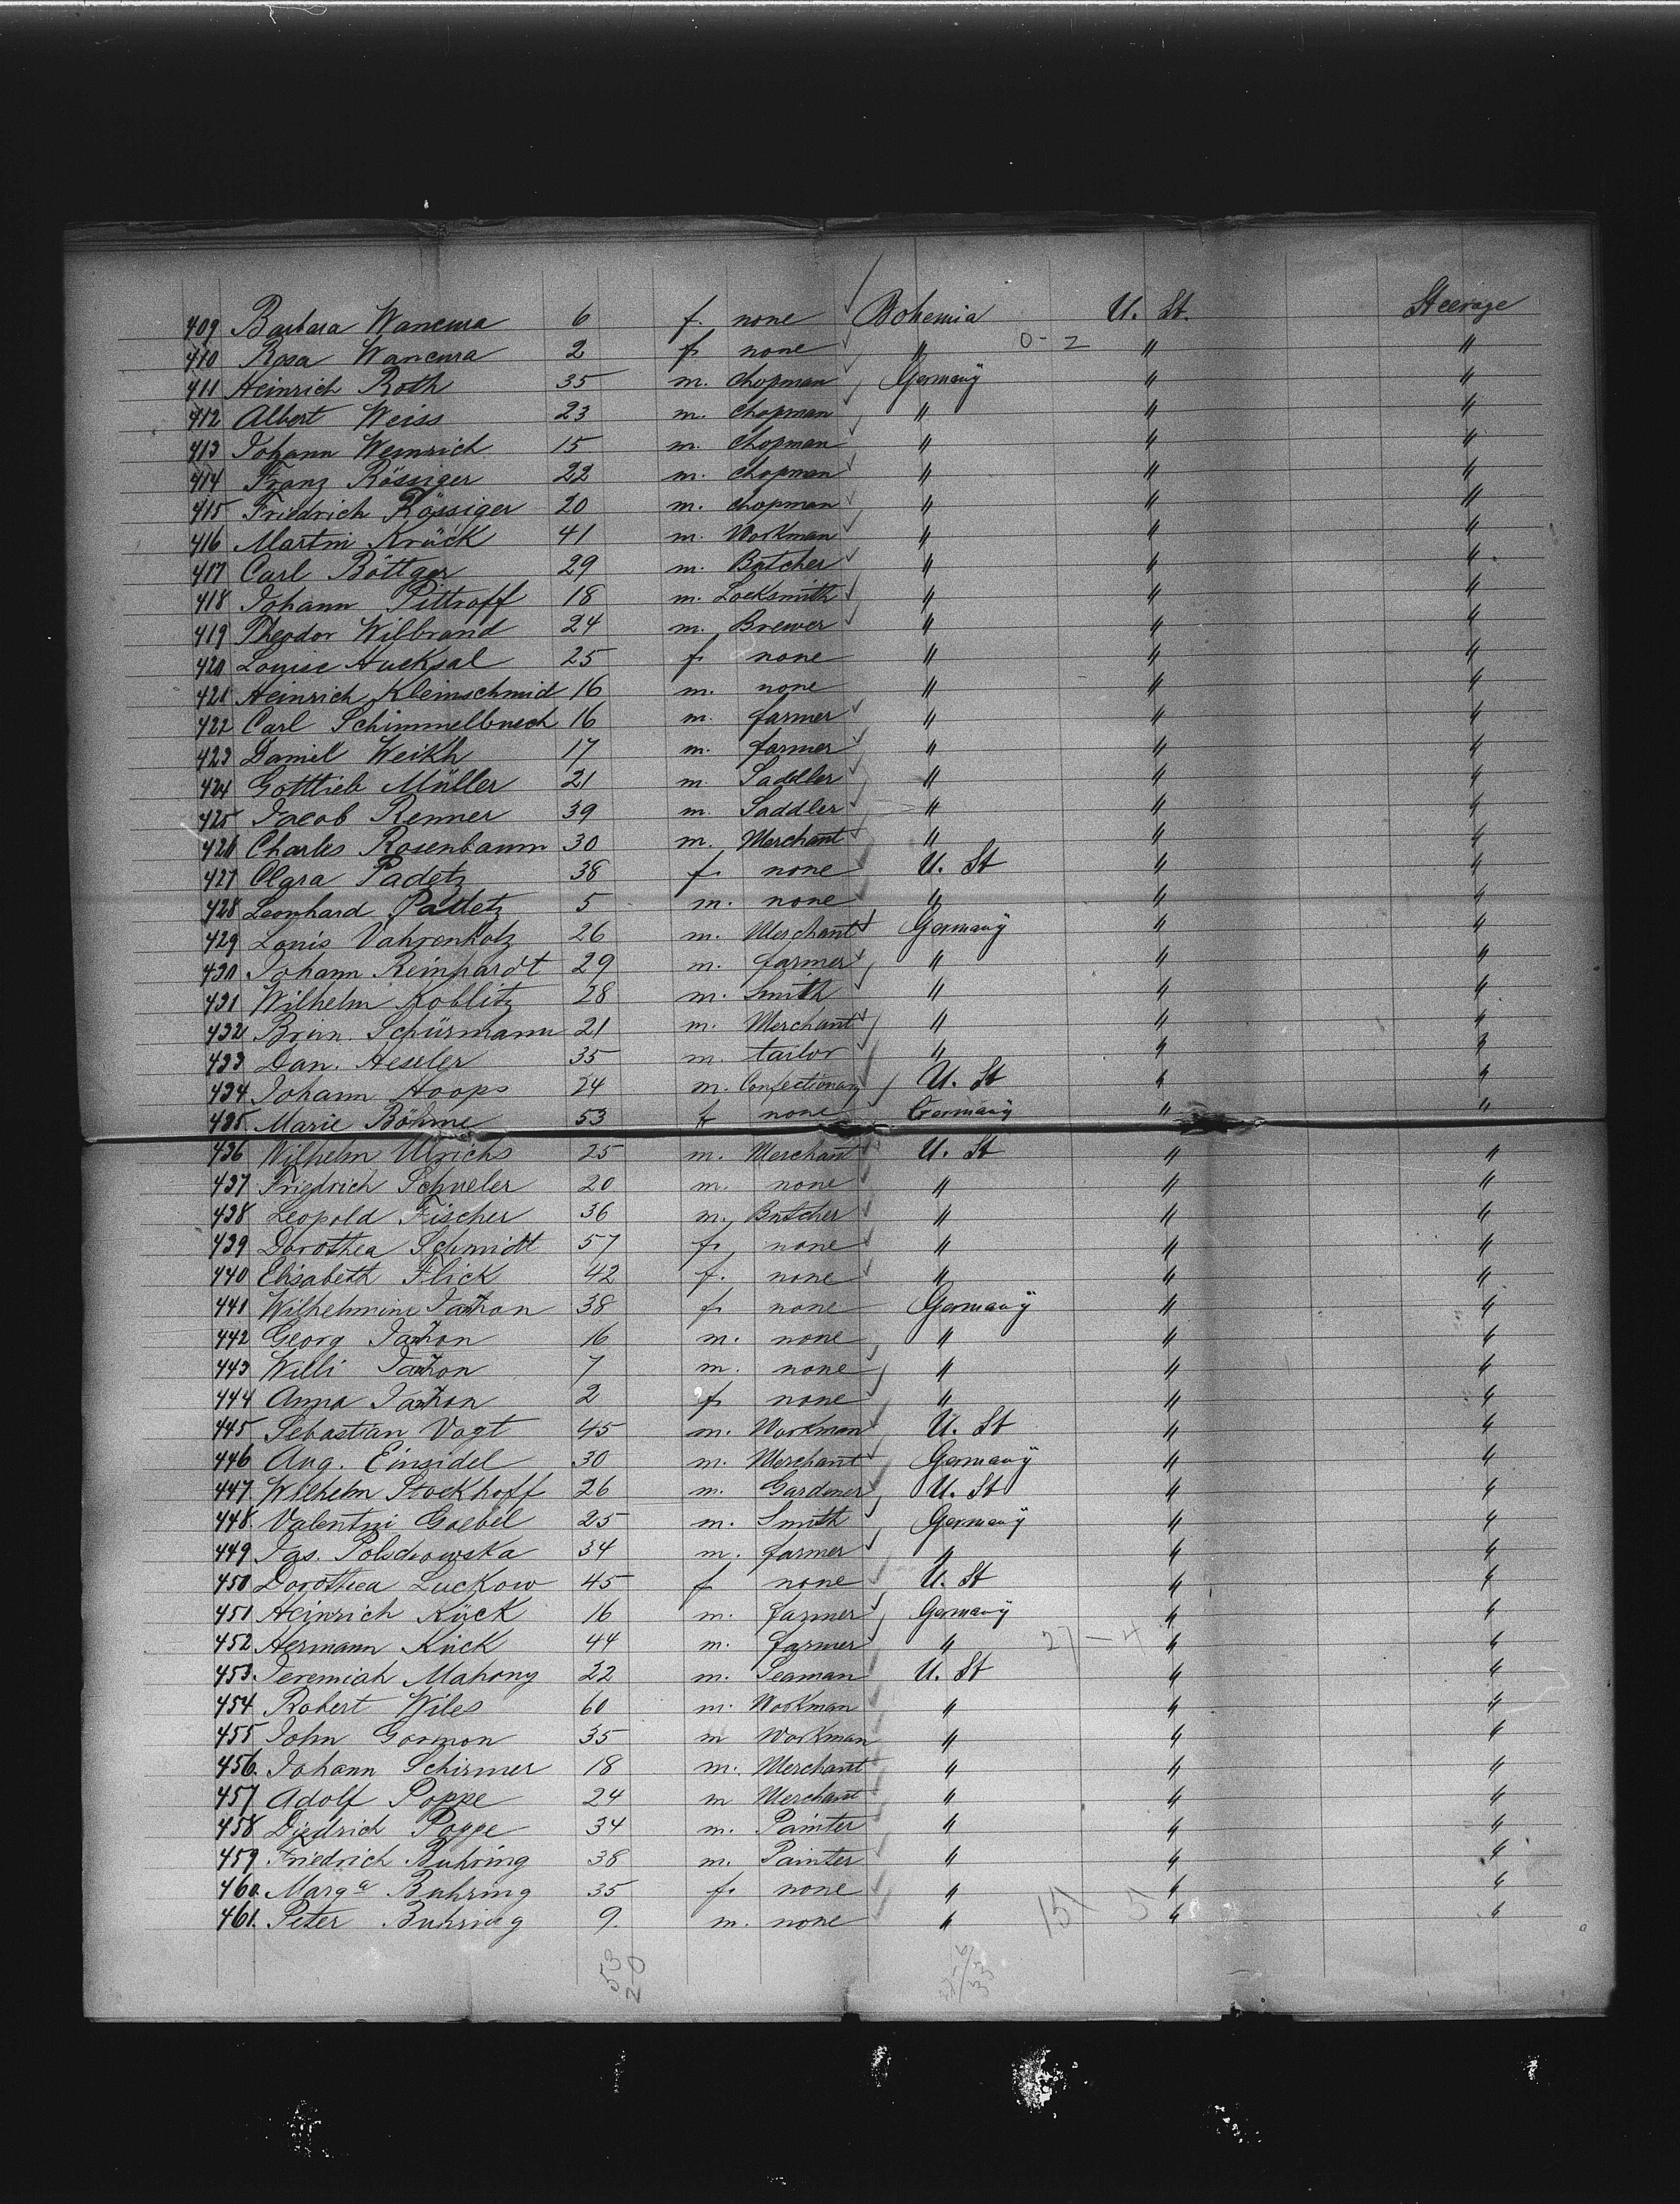 409 Barbara Wancura 6 f. none Bohemia U. St. Steerage
410 Rosa Wancura 2 f. none " 0-2 " "
411 Heinrich Roth 35 m. Chopman Germany " "
412 Albert Weiss 23 m. Chopman " " "
413 Johann Weinrich 15 m. Chopman " " "
414 Franz Rössiger 22 m. Chopman " " "
415 Friedrich Rössiger 20 m. Chopman " " "
416 Martin Krück 41 m. Workman " " "
417 Carl Böttger 29 m. Butcher " " "
418 Johann Pittroff 18 m. Locksmith " " "
419 Theodor Wilbrand 24 m. Brewer " " "
420 Louise Hucksal 25 f. none " " "
421 Heinrich Kleinschmid 16 m. none " " "
422 Carl 16 m. farmer " " "
423 Daniel Weikh 17 m. farmer " " "
424 Gottlieb Müller 21 m. Saddler " " "
425 Jacob Renner 39 m. Saddler " " "
426 Charles Rosenbaum 30 m. Merchant " " "
427 Clara Padetz 38 f. none U. St " "
428 Leonhard Padetz 5 m. none " " "
429 Louis Vahrenholz 26 m. Merchant Germany " "
430 Johann Reinhardt 29 m. farmer " " "
431 Wilhelm Koblitz 28 m. Smith " " "
432 Schürmann 21 m. Merchant " " "
433 Dan. Heseler 35 m. tailor " " "
434 Johann Hoops 24 m. Confectionary U. St " "
435 Marie Böhme 53 f. none Germany " "
436 Wilhelm Ulrichs 25 m. Merchant U. St " "
437 Friedrich Schueler 20 m. none " " "
438 Leopold Fischer 36 m. Butcher " " "
439 Dorothea Schmidt 57 f. none " " "
440 Elisabeth Flick 42 f. none " " "
441 Wilhelmine 38 f. none Germany " "
442 Georg 16 m. none " " "
443 Willi 7 m. none " " "
444 Anna 2 f. none " " "
445 Sebastian Vogt 45 m. Workman U. St " "
446 Aug. Einsidel 30 m. Merchant Germany " "
447 Wilhelm Stockhoff 26 m. Gardener U. St "  "
448 Valentin Goebel 25 m. Smith Germany " "
449 Jas. 34 m. farmer " " "
450 Dorothea Luckow 45 f none U. St " "
451 Heinrich Kück 16 m. farmer Germany " "
452 Hermann Kück 44 m. farmer " 27-4 " "
453 Jeremiah Mahony 22 m. Seaman U. St " "
454 Robert Wiles 60 m. Workman " " "
455 John Gormon 35 m Workman " " "
456. Johann Schirmer 18 m. Merchant " " "
457 Adolf Poppe 24 m Merchant " " "
458 Diedrich Poppe 34 m. Painter " " "
459 Friedrich Buhring 38 m. Painter " " "
460. Marga Buhring 35 f. none " " "
461. Peter Buhring 9. m. none " " "
53
20